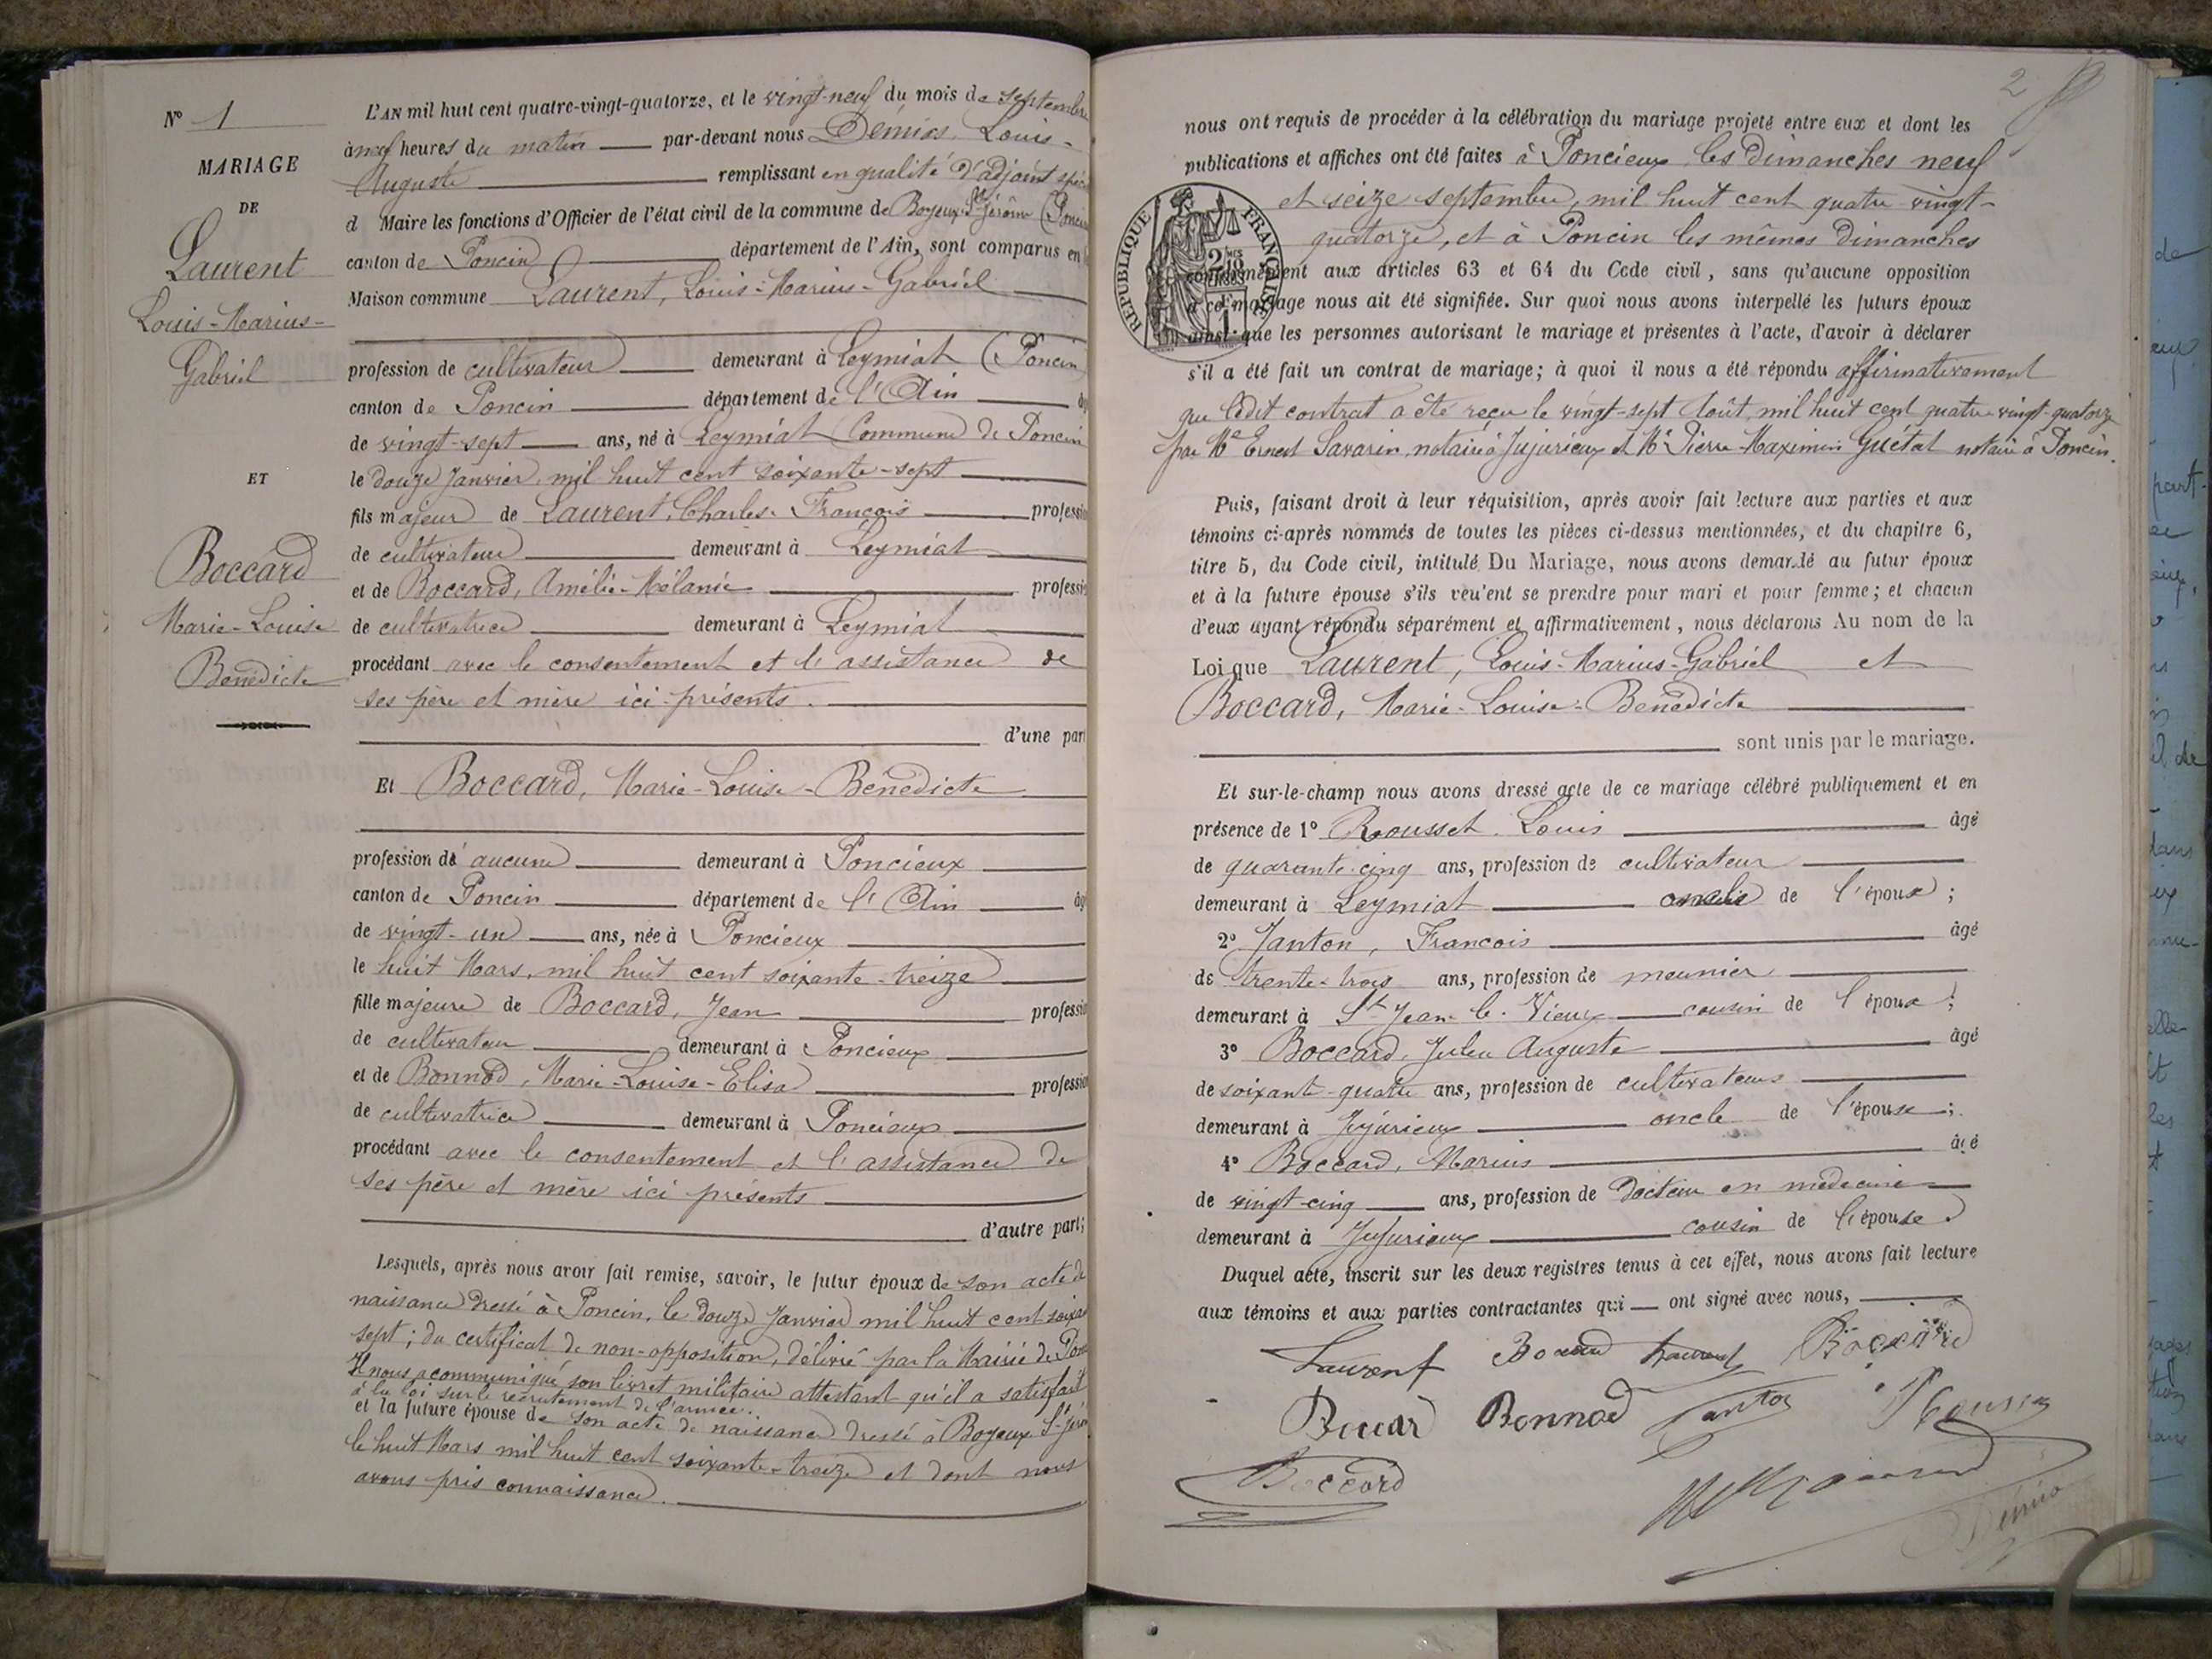 N° 1
MARIAGE
DE
Laurent
Louis-Marius-
Gabriel
ET
Boccard
Marie-Louise
Bénédicte
L'AN mil huit cent quatre-vingt-quatorze, et le vingt-neuf du mois de septembre
à neuf heures du matin par-devant nous Démias Louis-
Auguste remplissant en qualité d'adjoint
d Maire les fonctions d'Officier de l'état civil de la commune de Boyeux-St-Jérôme
canton de Poncin département de l'Ain, sont comparus en
Maison commune Laurent, Louis-Marius-Gabriel
profession de cultivateur demeurant à Leymiat (Poncin
canton de Poncin département de l'Ain
de vingt-sept ans, né à Leymiat Commune de Poncin
le douze Janvier mil huit cent soixante-sept
fils majeur de Laurent, Charles-François
de cultivateur demeurant à Leymiat
et de Boccard, Amélie-Mélanie
de cultivatrice demeurant à Leymiat
procédant avec le consentement et l'assistance de
ses père et mère ici présents.
d'une part
Et Boccard, Marie-Louise-Bénédicte
profession de aucune demeurant à Poncieux
canton de Poncin département de l'Ain
de vingt-un ans, née à Poncieux
le huit Mars, mil huit cent soixante-treize
fille majeure de Boccard, Jean
de cultivateur demeurant à Poncieux
et de Bonnod, Marie-Louise-Elisa
de cultivatrice demeurant à Poncieux
procédant avec le consentement et l'assistance de
ses père et mère ici présents
d'autre part;
Lesquels, après nous avoir fait remise, savoir, le futur époux de son acte de
naissance dressé à Poncin, le douze Janvier mil huit cent
sept; du certificat de non-opposition, délivré par la Mairie de
Il nous a communiqué son livret militaire attestant qu'il a satisfait
à la loi sur le recrutement de l'armée.
et la future épouse de son acte de naissance dressé à Boyeux St
le huit Mars mil huit cent soixante-treize et dont nous
avons pris connaissance.
2
nous ont requis de procéder à la célébration du mariage projeté entre eux et dont les
publications et affiches ont été faites à Poncieux les dimanches neuf
et seize septembre, mil huit cent quatre-vingt-
quatorze, et à Poncin les mêmes Dimanches
RÉPUBLIQUE FRANÇAISE
conformément aux articles 63 et 64 du Code civil, sans qu'aucune opposition
à ce mariage nous ait été signifiée. Sur quoi nous avons interpellé les futurs époux
ainsi que les personnes autorisant le mariage et présentes à l'acte, d'avoir à déclarer
s'il a été fait un contrat de mariage; à quoi il nous a été répondu affirmativement
que ledit contrat a été reçu le vingt-sept Août mil huit cent quatre vingt-quatorze
par Me Ernest Savarin, notaire à Jujurieux et Me Pierre-Maximin Guétat notaire à Poncin.
Puis, faisant droit à leur réquisition, après avoir fait lecture aux parties et aux
témoins ci-après nommés de toutes les pièces ci-dessus mentionnées, et du chapitre 6,
titre 5, du Code civil, intitulé Du Mariage, nous avons demandé au futur époux
et à la future épouse s'ils veulent se prendre pour mari et pour femme; et chacun
d'eux ayant répondu séparément et affirmativement, nous déclarons Au nom de la
Loi que Laurent, Louis-Marius-Gabriel et
Boccard, Marie-Louise-Bénédicte
sont unis par le mariage.
Et sur-le-champ nous avons dressé acte de ce mariage célébré publiquement et en
présence de 1° Rousset Louis âgé
de quarante-cinq ans, profession de cultivateur
demeurant à Leymiat de l'époux;
2° Janton, François âgé
de trente-trois ans, profession de meunier
demeurant à St Jean-le-Vieux cousin de l'époux;
3° Boccard, Jules Auguste âgé
de soixante-quatre ans, profession de cultivateurs
demeurant à Jujurieux oncle de l'épouse;
4° Boccard, Marius âgé
de vingt-cinq ans, profession de Docteur en médecine
demeurant à Jujurieux cousin de l'épouse.
Duquel acte, inscrit sur les deux registres tenus à cet effet, nous avons fait lecture
aux témoins et aux parties contractantes qui ont signé avec nous,
Laurent Boccard Laurent Boccard
Boccard Bonnod Janton Rousset
Boccard
Démias